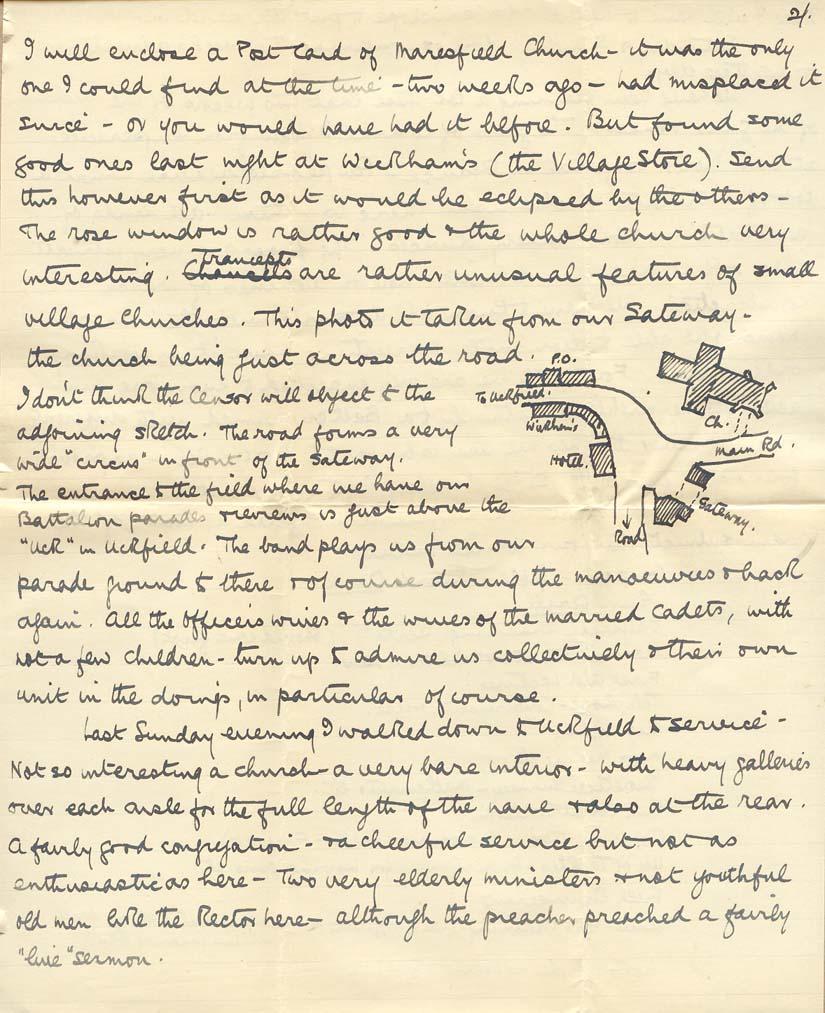 2/.
I will enclose a Post Card of Maresfield Church - it was the only
one I could find at the time - two weeks ago - had misplaced it
since - or you would have had it before. But found some
good ones last night at Wickham's (the Village Store). Send
this however first as it would be eclipsed by the others -
The rose window is rather good & the whole church very
interesting. Chancels Trancepts are rather unusual features of small
village Churches. This photo it taken from our Gateway -
the church being just across the road.
I don't think the Censor will object to the
adjoining sketch. The road forms a very
wide "circus" in front of the Gateway.
The entrance to the field where we have our
Battalion parades & reviews is just above the
"Uck" in Uckfield. The band plays us from our
parade ground to there & of course during the manoeuvres & back
again. All the Officers wives & the wives of the married Cadets, with
not a few children - turn up to admire us collectively & their own
unit in the doings, in particular of course.
Last Sunday evening I walked down to Uckfield to service -
Not so interesting a church - a very bare interior - with heavy galleries
over each aisle for the full length of the nave & also at the rear.
A fairly good congregation - & a cheerful service but not as
enthusiastic as here - Two very elderly ministers & not youthful
old men like the Rector here - although the preacher preached a fairly
"live" sermon.
P.O.
To Uckfield.
Wickham's
Hotel.
Ch.
Main Rd.
Gateway.
Road